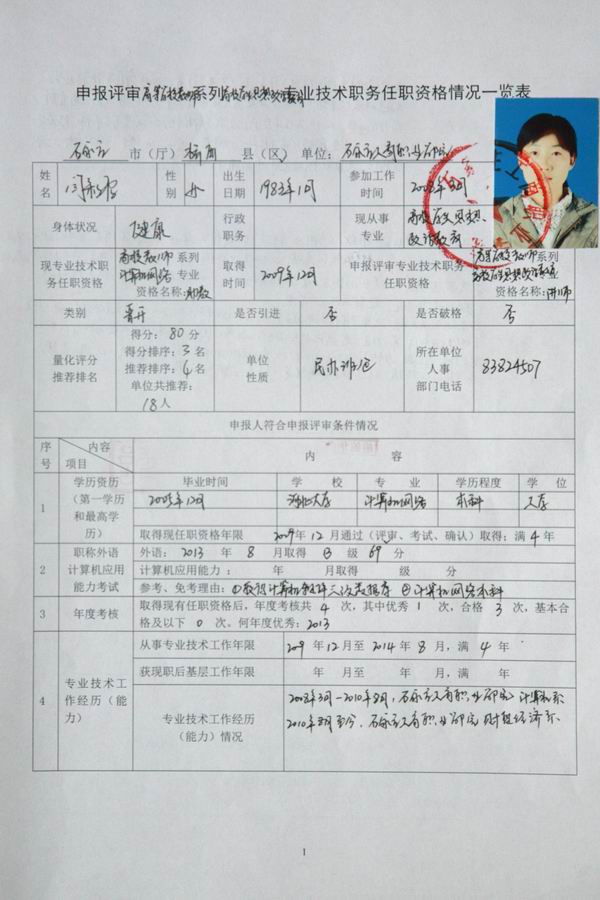 申报评审高等学校教师系列高校学生思想政治教育专业技术职务任职资格情况一览表
石家庄 市（厅） 桥西 县（区） 单位：石家庄工商职业学院
姓名 性别 女 出生日期 1983年1月 参加工作时间 2008年3月
身体状况 健康 行政职务 现从事专业 高校学生思想政治教育
现专业技术职务任职资格 高校教师 系列 计算机网络 专业 资格名称：助教 取得时间 2009年12月 申报评审专业技术职务任职资格 高等学校教师系列 高校学生思想政治教育 资格名称：讲师
类别 晋升 是否引进 否 是否破格 否
量化评分推荐排名 得分：80分 得分排序：3名 推荐排序：4名 单位共推荐：18人 单位性质 民办 所在单位人事部门电话 83824507
申报人符合申报评审条件情况
序号 内容 项目 内 容
1 学历资历（第一学历和最高学历） 毕业时间 学 校 专 业 学历程度 学 位
2005年12月 河北大学 计算机网络 本科
取得现任职资格年限 2009年12月通过（评审、考试、确认）取得；满4年
2 职称外语计算机应用能力考试 外语：2013 年 8 月取得 B 级 69 分
计算机应用能力： 年 月取得 级 分
参考、免考理由：②计算机网络本科
3 年度考核 取得现有任职资格后，年度考核共 4 次，其中优秀 1 次，合格 3 次，基本合格及以下 0 次。何年度优秀：2013
4 专业技术工作经历（能力） 从事专业技术工作年限 2009 年 12 月至 2014 年 8 月，满 4 年
获现职后基层工作年限 年 月至 年 月，满 年
专业技术工作经历（能力）情况 2008年3月-2010年8月，石家庄工商职业学院 计算机系
2010年8月至今，石家庄工商职业学院 财经经济系
1